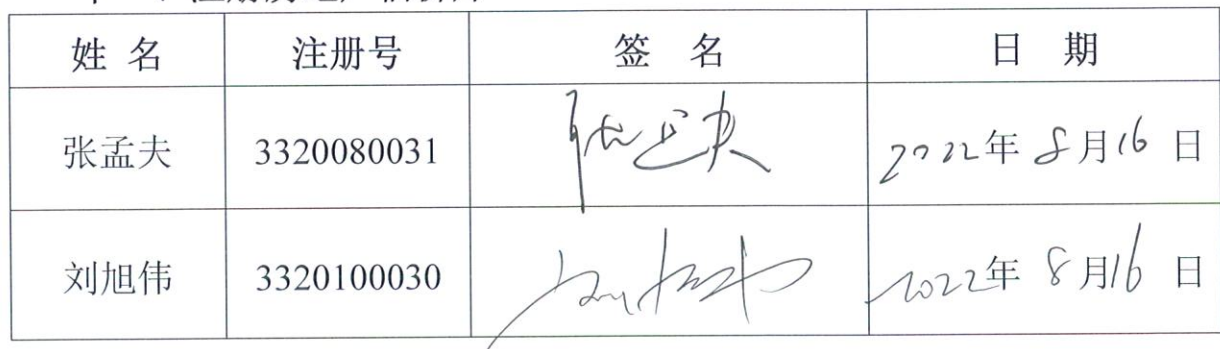 姓 名 注册号 签 名 日 期
张孟夫 3320080031 张孟夫 2022年 8月16 日
刘旭伟 3320100030 2022年 8月16 日